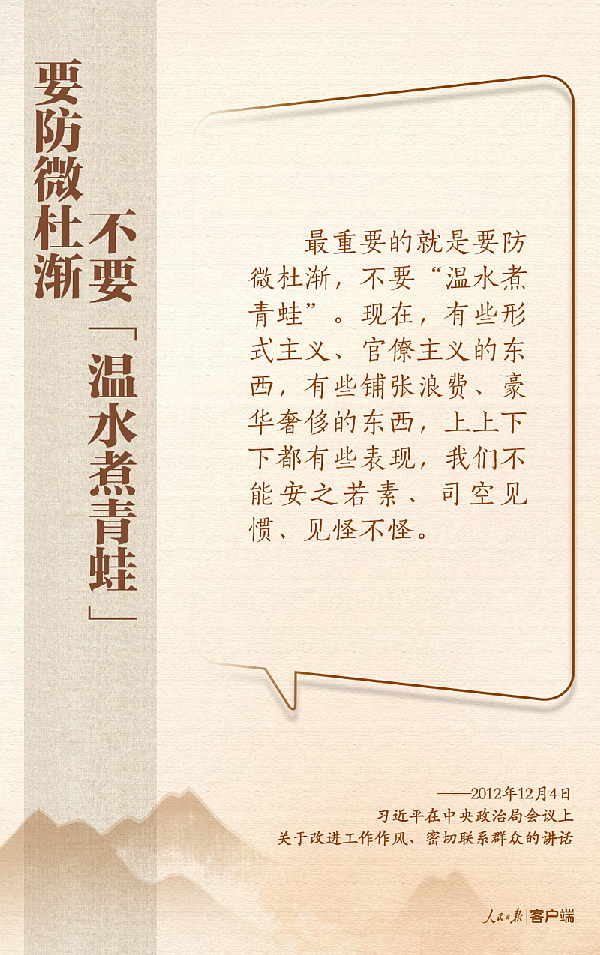 要防微杜渐
不要「温水煮青蛙」
最重要的就是要防
微杜渐，不要“温水煮
青蛙”。现在，有些形
式主义、官僚主义的东
西，有些铺张浪费、豪
华奢侈的东西，上上下
下都有些表现，我们不
能安之若素、司空见
惯、见怪不怪。
——2012年12月4日
习近平在中央政治局会议上
关于改进工作作风、密切联系群众的讲话
人民日报 客户端